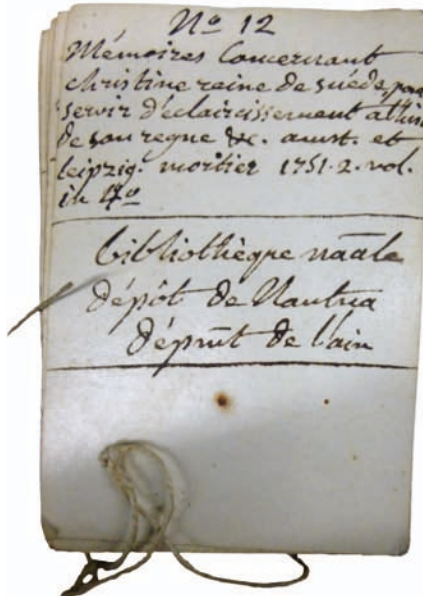 No 12
Mémoires Concernant
christine reine de suéde, pour
servir d'eclaircissement a l'his
de son regne &c. amst. et
leipzig. mortier 1751. 2. vol.
in 4o
bibliothèque naãle
dépôt de Nantua
dépmt de l'ain